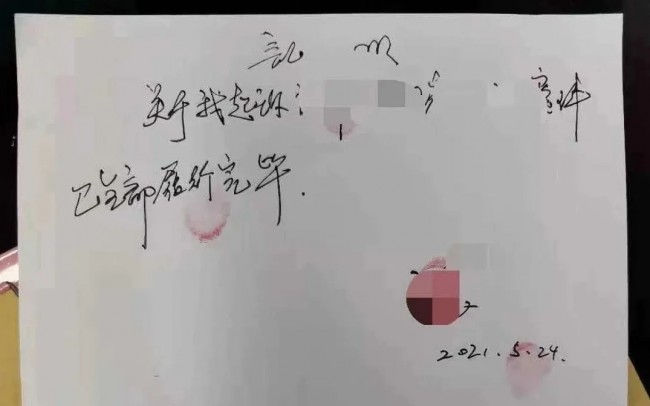 说 明
关于我起诉 案件
已全部履行完毕.
2021.5.24.